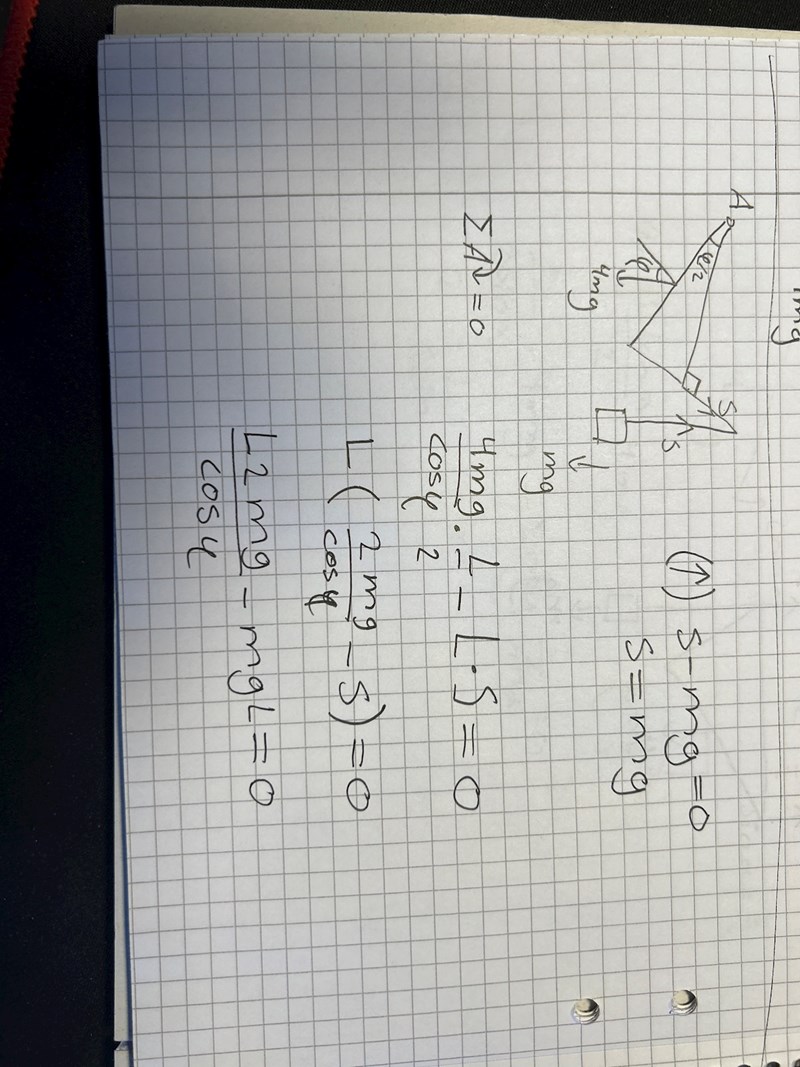 mg
A
φ/2
S
S
φ
4mg
mg
(↑) S - mg = 0
S = mg
ΣA↷ = 0
4mg/cosφ · L/2 - L · S = 0
L ( 2mg/cosφ - S ) = 0
L2mg/cosφ - mgL = 0